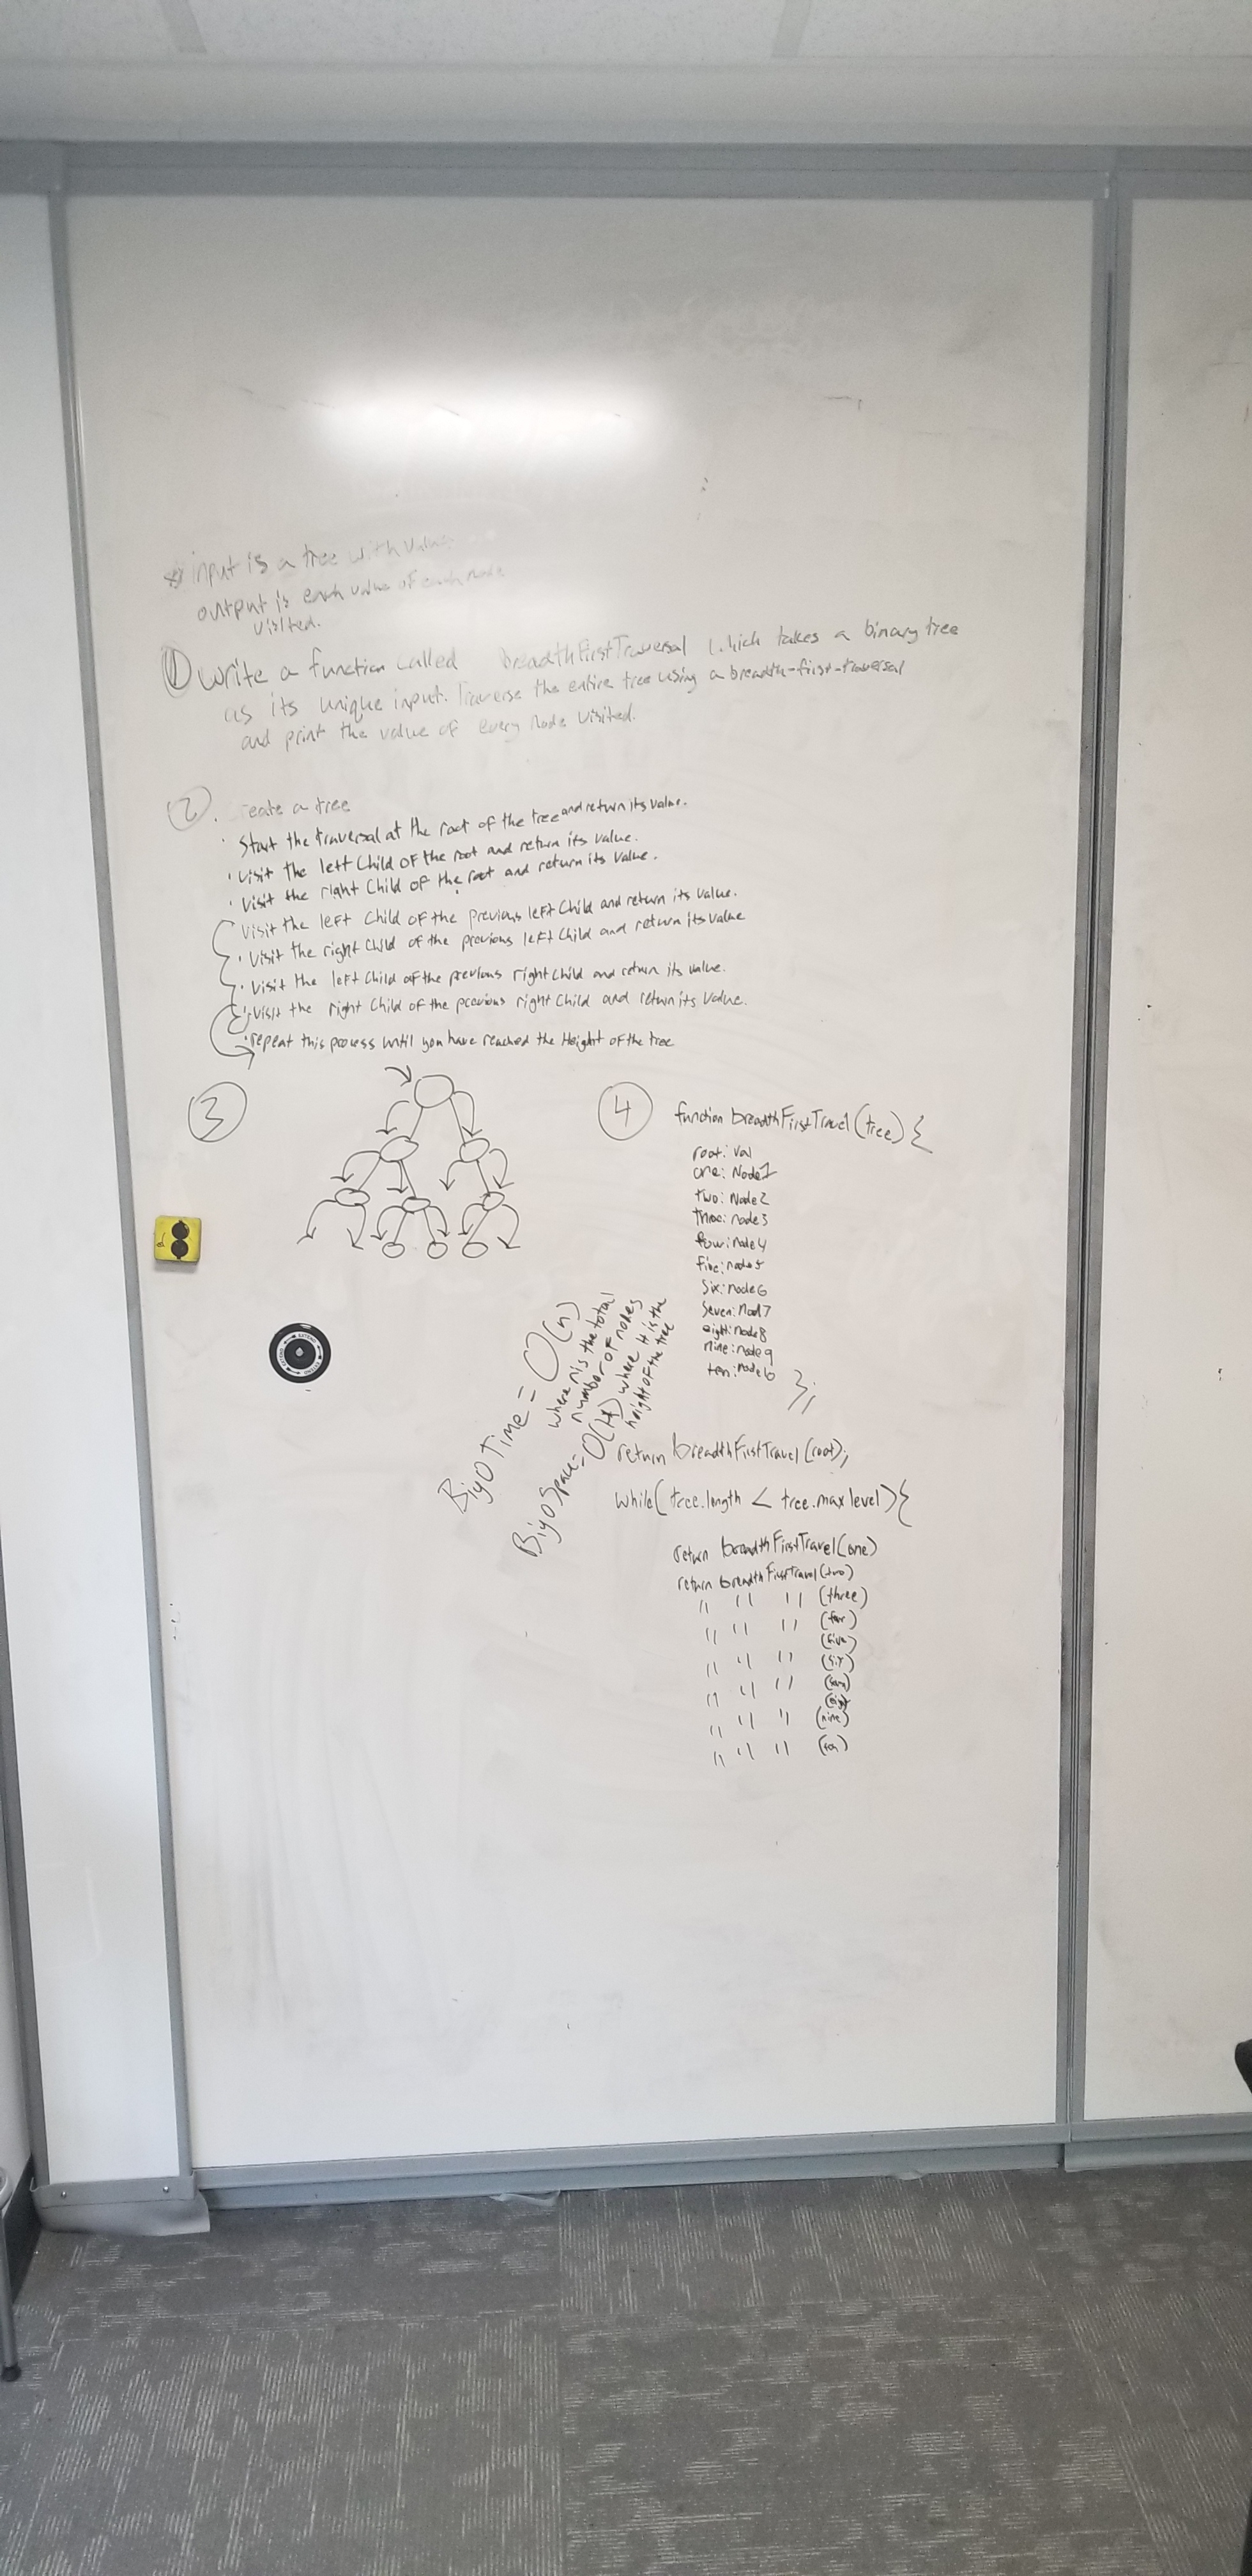 input is a tree with value
output is each value of each node
visited.
① Write a function called breadthFirstTraversal which takes a binary tree
as its unique input. Traverse the entire tree using a breadth-first-traversal
and print the value of every node visited.
② . reate a tree
· Start the traversal at the root of the tree and return its value.
· visit the left child of the root and return its value.
· visit the right child of the root and return its value.
· visit the left child of the previous left child and return its value.
· visit the right child of the previous left child and return its value
· visit the left child of the previous right child and return its value.
· visit the right child of the previous right child and return its value.
· repeat this process until you have reached the Height of the tree
③
④ function breadthFirstTravel(tree) {
root: val
one: Node1
two: Node2
three: node3
four: node4
five: node5
six: node6
seven: nod7
eight: node8
nine: node9
ten: node10
};
Big O Time = O(n)
where n is the total
number of nodes
Big O Space = O(H) where H is the
height of the tree
return breadthFirstTravel(root);
while(tree.length < tree.maxlevel){
return breadthFirstTravel(one)
return breadthFirstTravel(two)
" " " (three)
" " " (four)
(five)
" " " (six)
" " " (seven)
(eight)
" " " (nine)
" " " (ten)